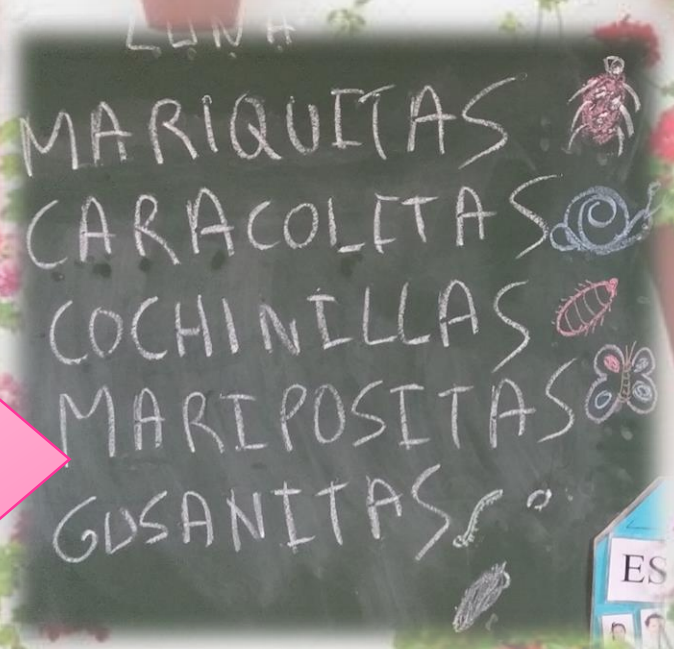 LUNA
MARIQUITAS
CARACOLITAS
COCHINILLAS
MARIPOSITAS
GUSANITAS
ES